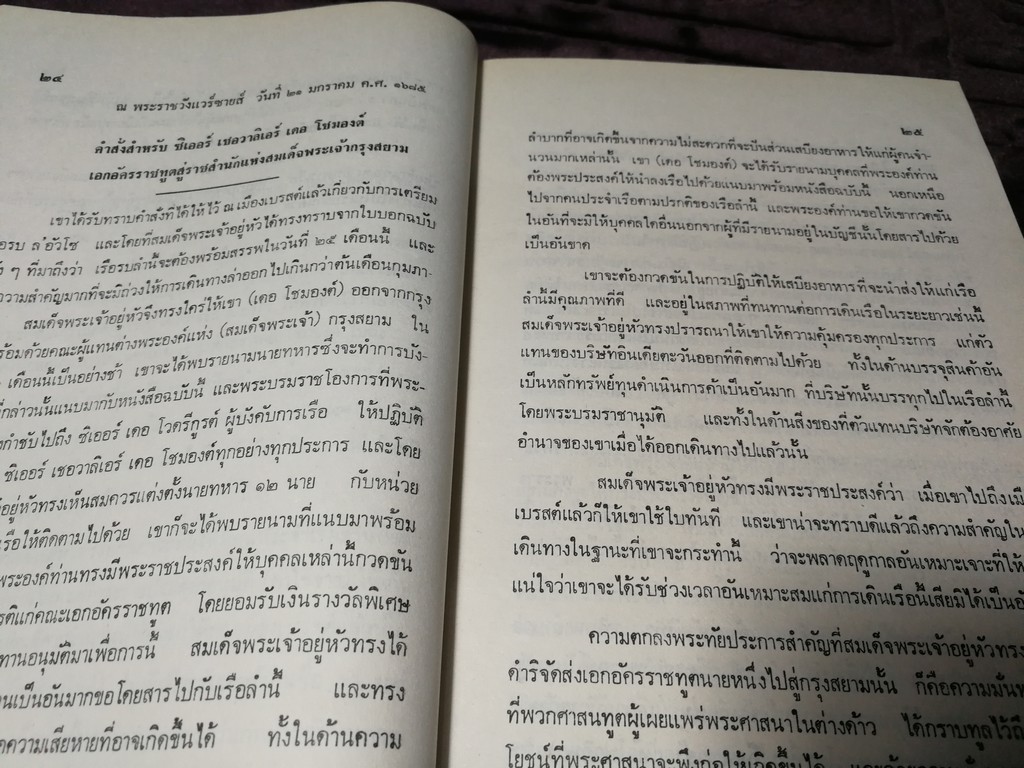 ๒๔
ณ พระราชวังแวร์ซายส์ วันที่ ๒๑ มกราคม ค.ศ. ๑๖๘๕
คำสั่งสำหรับ ชิเออร์ เชอวาลิเอร์ เดอ โชมองต์
เอกอัครราชทูตสู่ราชสำนักแห่งสมเด็จพระเจ้ากรุงสยาม
เขาได้รับทราบคำสั่งที่ได้ให้ไว้ ณ เมืองเบรสต์แล้วเกี่ยวกับการเตรียม
ล'อัวโซ และโดยที่สมเด็จพระเจ้าอยู่หัวได้ทรงทราบจากใบบอกฉบับ
ๆ ที่มาถึงว่า เรือรบลำนี้จะต้องพร้อมสรรพในวันที่ ๒๕ เดือนนี้ และ
ความสำคัญมากที่จะมิถ่วงให้การเดินทางล่าออกไปเกินกว่าต้นเดือนกุมภา-
สมเด็จพระเจ้าอยู่หัวจึงทรงใคร่ให้เขา (เดอ โชมองต์) ออกจากกรุง
พร้อมด้วยคณะผู้แทนต่างพระองค์แห่ง (สมเด็จพระเจ้า) กรุงสยาม ใน
เดือนนี้เป็นอย่างช้า เขาจะได้พบรายนามนายทหารซึ่งจะทำการบัง-
ที่กล่าวนั้นแนบมากับหนังสือฉบับนี้ และพระบรมราชโองการที่พระ-
กำชับไปถึง ซิเออร์ เดอ โวดรีกูรต์ ผู้บังคับการเรือ ให้ปฏิบัติ
ซิเออร์ เชอวาลิเอร์ เดอ โชมองต์ทุกอย่างทุกประการ และโดย
อยู่หัวทรงเห็นสมควรแต่งตั้งนายทหาร ๑๒ นาย กับหน่วย
เรือให้ติดตามไปด้วย เขาก็จะได้พบรายนามที่แนบมาพร้อม
พระองค์ท่านทรงมีพระราชประสงค์ให้บุคคลเหล่านี้กวดขัน
แก่คณะเอกอัครราชทูต โดยยอมรับเงินรางวัลพิเศษ
ทานอนุมัติมาเพื่อการนี้ สมเด็จพระเจ้าอยู่หัวทรงได้
เป็นอันมากขอโดยสารไปกับเรือลำนี้ และทรง
ความเสียหายที่อาจเกิดขึ้นได้ ทั้งในด้านความ
๒๕
ลำบากที่อาจเกิดขึ้นจากความไม่สะดวกที่จะปันส่วนเสบียงอาหารให้แก่ผู้คนจำ-
นวนมากเหล่านั้น เขา (เดอ โชมองต์) จะได้รับรายนามบุคคลที่พระองค์ท่าน
ต้องพระประสงค์ให้นำลงเรือไปด้วยแนบมาพร้อมหนังสือฉบับนี้ นอกเหนือ
ไปจากคนประจำเรือตามปรกติของเรือลำนี้ และพระองค์ท่านขอให้เขากวดขัน
ในอันที่จะมิให้บุคคลใดอื่นนอกจากผู้ที่มีรายนามอยู่ในบัญชีนั้นโดยสารไปด้วย
เป็นอันขาด
เขาจะต้องกวดขันในการปฏิบัติให้เสบียงอาหารที่จะนำส่งให้แก่เรือ
ลำนี้มีคุณภาพที่ดี และอยู่ในสภาพที่ทนทานต่อการเดินเรือในระยะยาวเช่นนี้
สมเด็จพระเจ้าอยู่หัวทรงปรารถนาให้เขาให้ความคุ้มครองทุกประการ แก่ตัว
แทนของบริษัทอินเดียตะวันออกที่ติดตามไปด้วย ทั้งในด้านบรรจุสินค้าอัน
เป็นหลักทรัพย์ทุนดำเนินการค้าเป็นอันมาก ที่บริษัทนั้นบรรทุกไปในเรือลำนี้
โดยพระบรมราชานุมัติ และทั้งในด้านสิ่งของที่ตัวแทนบริษัทจักต้องอาศัย
อำนาจของเขาเมื่อได้ออกเดินทางไปแล้วนั้น
สมเด็จพระเจ้าอยู่หัวทรงมีพระราชประสงค์ว่า เมื่อเขาไปถึง
เบรสต์แล้วก็ให้เขาใช้ใบทันที และเขาน่าจะทราบดีแล้วถึงความสำคัญใน
เดินทางในฐานะที่เขาจะกระทำนี้ ว่าจะพลาดฤดูกาลอันเหมาะเจาะที่ให้
แน่ใจว่าเขาจะได้รับช่วงเวลาอันเหมาะสมแก่การเดินเรือนี้เสียมิได้เป็น
ความตกลงพระทัยประการสำคัญที่สมเด็จพระเจ้าอยู่หัวทรง
ดำริจัดส่งเอกอัครราชทูตนายหนึ่งไปสู่กรุงสยามนั้น ก็คือความมั่น
ที่พวกศาสนทูตผู้เผยแพร่พระศาสนาในต่างด้าว ได้กราบทูลไว้ถึง
โยชน์ที่พระศาสนาจะพึงก่อให้เกิดขึ้นได้